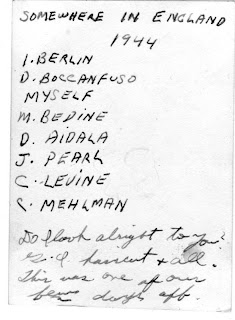 SOMEWHERE IN ENGLAND
1944
I. BERLIN
D. BOCCANFUSO
MYSELF
M. BEDINE
D. AIDALA
J. PEARL
C. LEVINE
C. MEHLMAN
Do I look alright to you?
G.I. haircut & all.
This was one of our
few days off.